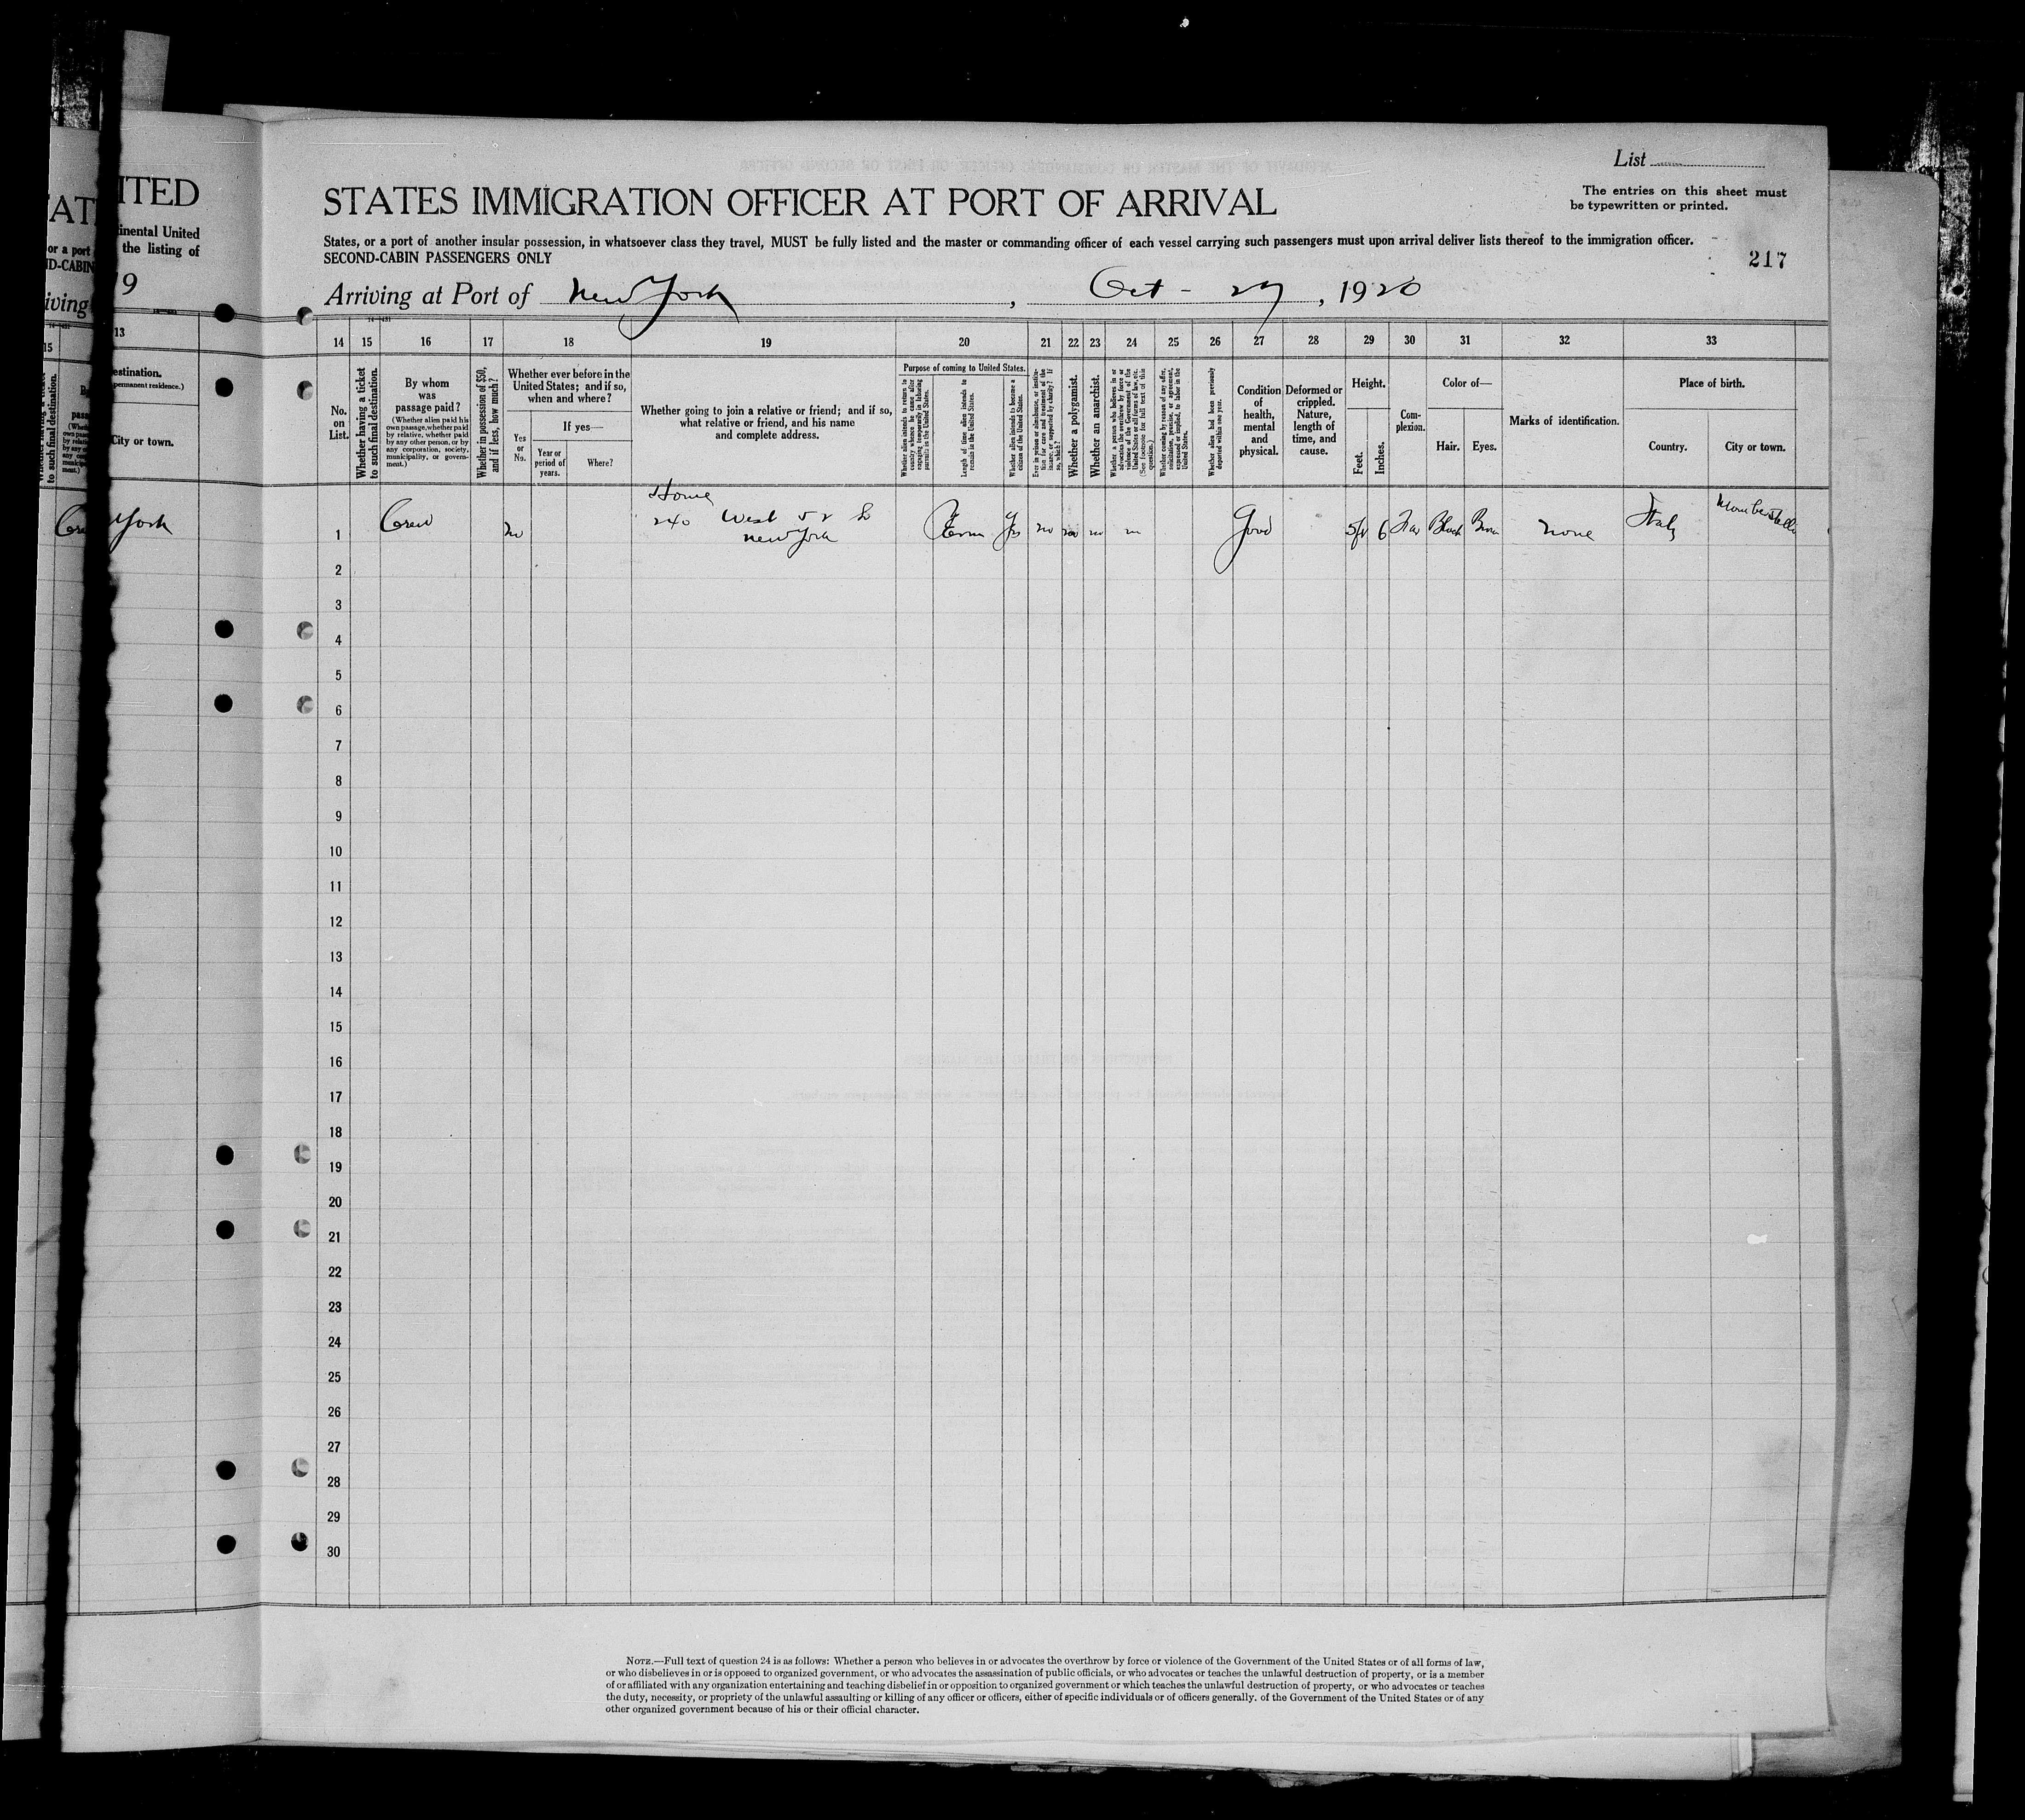 List
The entries on this sheet must
be typewritten or printed.
STATES IMMIGRATION OFFICER AT PORT OF ARRIVAL
States, or a port of another insular possession, in whatsoever class they travel, MUST be fully listed and the master or commanding officer of each vessel carrying such passengers must upon arrival deliver lists thereof to the immigration officer.
SECOND-CABIN PASSENGERS ONLY
217
Arriving at Port of New York, Oct - 29, 1920
ITED
inental United
the listing of
9
13
estination.
permanent residence.)
City or town.
York
14 15 16 17 18 19 20 21 22 23 24 25 26 27 28 29 30 31 32 33
No.
on
List.
Whether having a ticket
to such final destination.
By whom
was
passage paid?
(Whether alien paid his
own passage, whether paid
by relative, whether paid
by any other person, or by
any corporation, society,
municipality, or govern-
ment.)
Whether in possession of $50,
and if less, how much?
Whether ever before in the
United States; and if so,
when and where?
Yes
or
No.
If yes—
Year or
period of
years.
Where?
Whether going to join a relative or friend; and if so,
what relative or friend, and his name
and complete address.
Purpose of coming to United States.
Whether alien intends to return to
country whence he came after
engaging temporarily in laboring
pursuits in the United States.
Length of time alien intends to
remain in the United States.
Whether alien intends to become a
citizen of the United States.
Ever in prison or almshouse, or institu-
tion for care and treatment of the
insane, or supported by charity? If
so, which?
Whether a polygamist.
Whether an anarchist.
Whether a person who believes in or
advocates the overthrow by force or
violence of the Government of the
United States or all forms of law, etc.
(See footnote for full text of this
question.)
Whether coming by reason of any offer,
solicitation, promise, or agreement,
expressed or implied, to labor in the
United States.
Whether alien had been previously
deported within one year.
Condition
of
health,
mental
and
physical.
Deformed or
crippled.
Nature,
length of
time, and
cause.
Height.
Feet.
Inches.
Com-
plexion.
Color of—
Hair.
Eyes.
Marks of identification.
Place of birth.
Country.
City or town.
Home
1 Crew no 240 West 52 New York Perm Yes no no no no Good 5ft 6 Black none Italy
2
3
4
5
6
7
8
9
10
11
12
13
14
15
16
17
18
19
20
21
22
23
24
25
26
27
28
29
30
NOTE.—Full text of question 24 is as follows: Whether a person who believes in or advocates the overthrow by force or violence of the Government of the United States or of all forms of law,
or who disbelieves in or is opposed to organized government, or who advocates the assassination of public officials, or who advocates or teaches the unlawful destruction of property, or is a member
of or affiliated with any organization entertaining and teaching disbelief in or opposition to organized government or which teaches the unlawful destruction of property, or who advocates or teaches
the duty, necessity, or propriety of the unlawful assaulting or killing of any officer or officers, either of specific individuals or of officers generally. of the Government of the United States or of any
other organized government because of his or their official character.